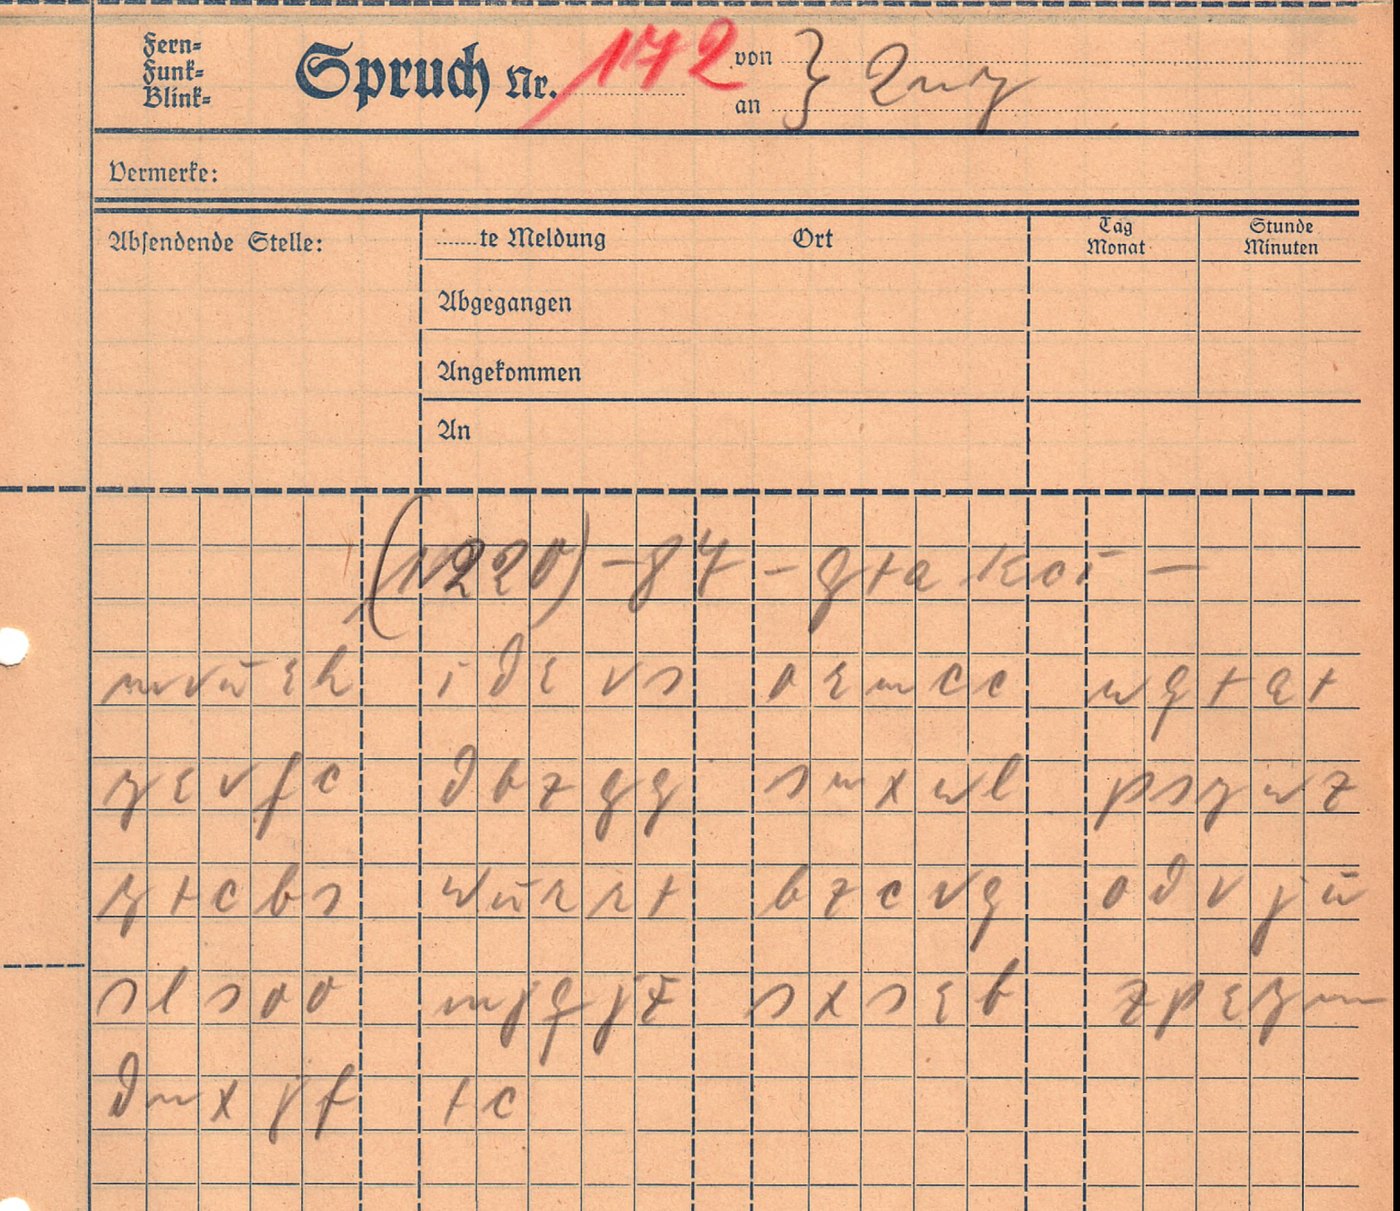 Fern=
Funk=
Blink=
Spruch Nr. 172 von
an
Vermerke:
Absendende Stelle: ......te Meldung Ort Tag Monat Stunde Minuten
Abgegangen
Angekommen
An
(1220) – 87 – qta kci –
mvueh idevs oemcc wqtat
yevfc dbzgg smxwl psywz
ytcbs wurrt bzcvq odvju
slsoo mjqjz sxseb zpeym
dnxjf tc